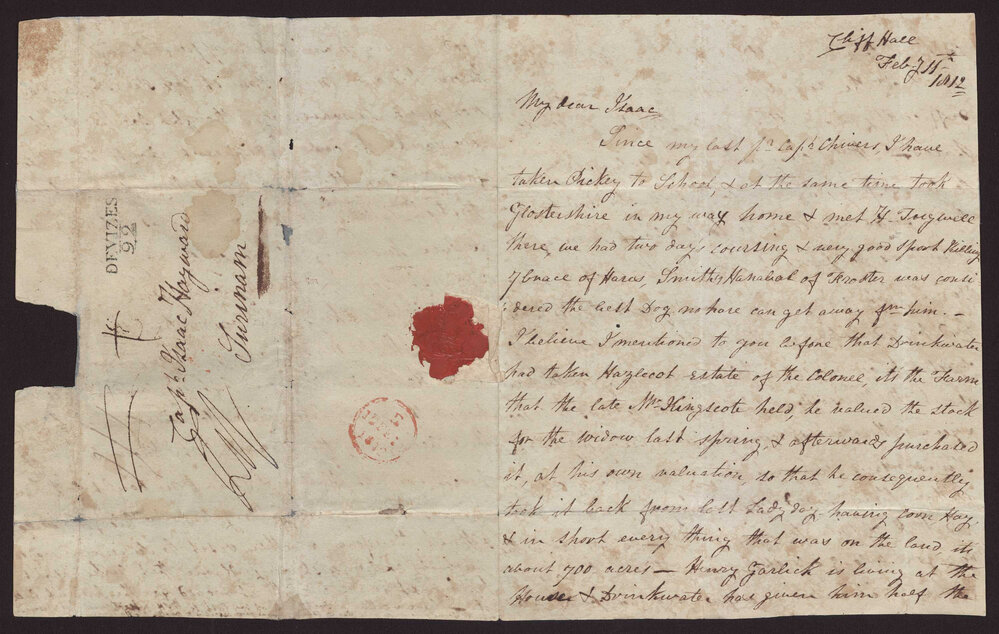 DEVIZES
92
Capt. Isaac Hayward
Surinam
Cliff Hall
Feby 11th
1812
My dear Isaac,
Since my last pr. Capn. Chivers, I have
taken Dickey to School, & at the same time took
Glostershire in my way home & met H Tugwell
there we had two days coursing & very good sport killing
7 brace of Hares, Smiths Hanabal of Froster was consi
:dered the best Dog no hare can get away fm him. –
I believe I mentioned to you before that Drinkwater
had taken Hazlecot Estate of the Colonel, its the Farm
that the late Mr. Kingscote held, he valued the stock
for the widow last spring, & afterwards purchased
it, at his own valuation, so that he consequently
took it back from last Lady day having corn Hay
& in short every thing that was on the land, its
about 700 acres – Henry Garlick is living at the
House & Drinkwater has given him half the